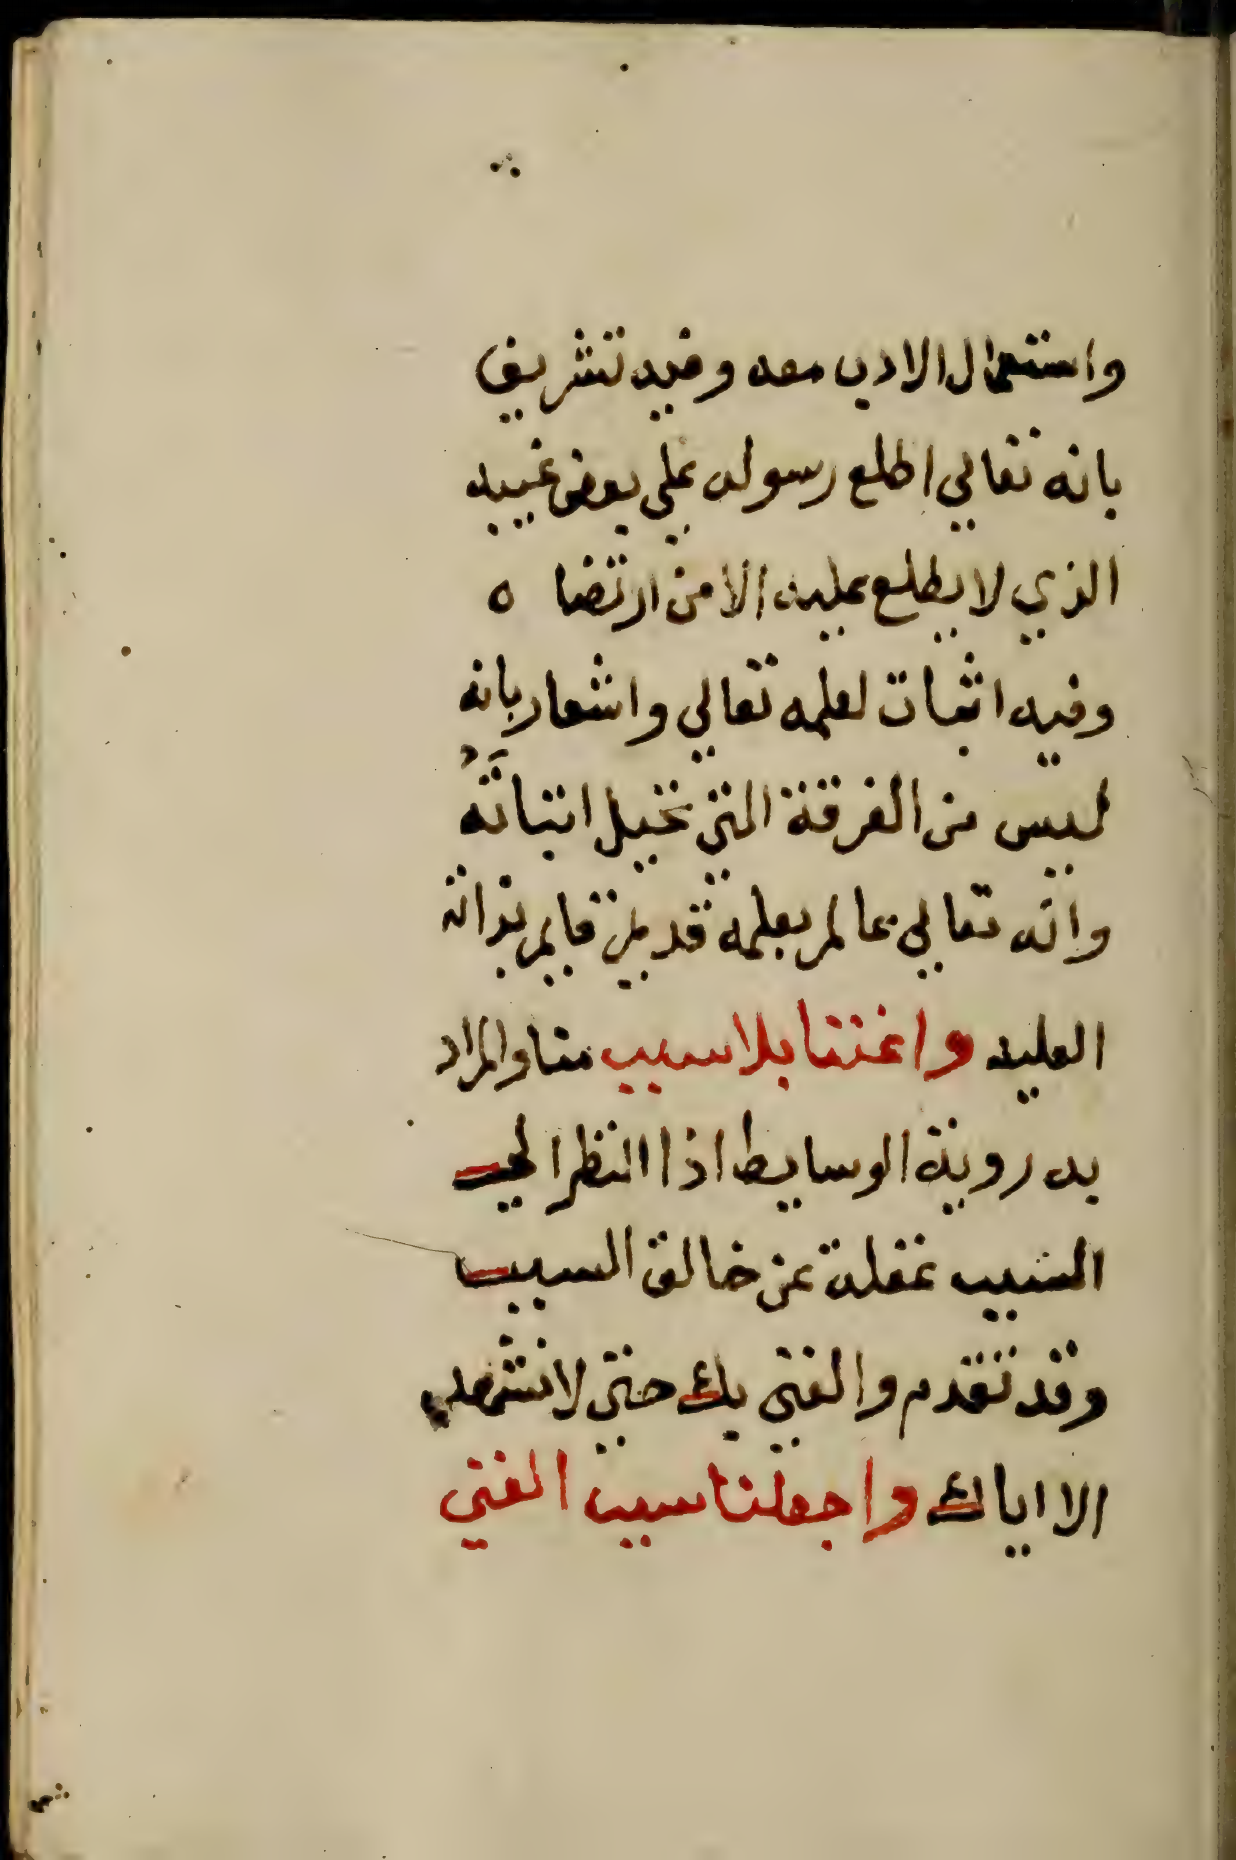 واستعمال الادب معه وفيه تشريف
بانه تعالي اطلع رسوله علي بعض غيبه
الذي لا يطلع عليه الا من ارتضا ه
وفيه اثبات لعلمه تعالي واشعار بانه
ليس من الفرقة التي تخيل اثباته
وانه تعالي عالم بعلمه قديم قايم بذاته
العليه واغننا بلا سبب منا والمراد
به روية الوسايط اذا النظر الي
السبب غفلة عن خالق السبب
وقد تقدم والغني بك حتي لا نشهد
الا اياك واجعلنا سبب الغني